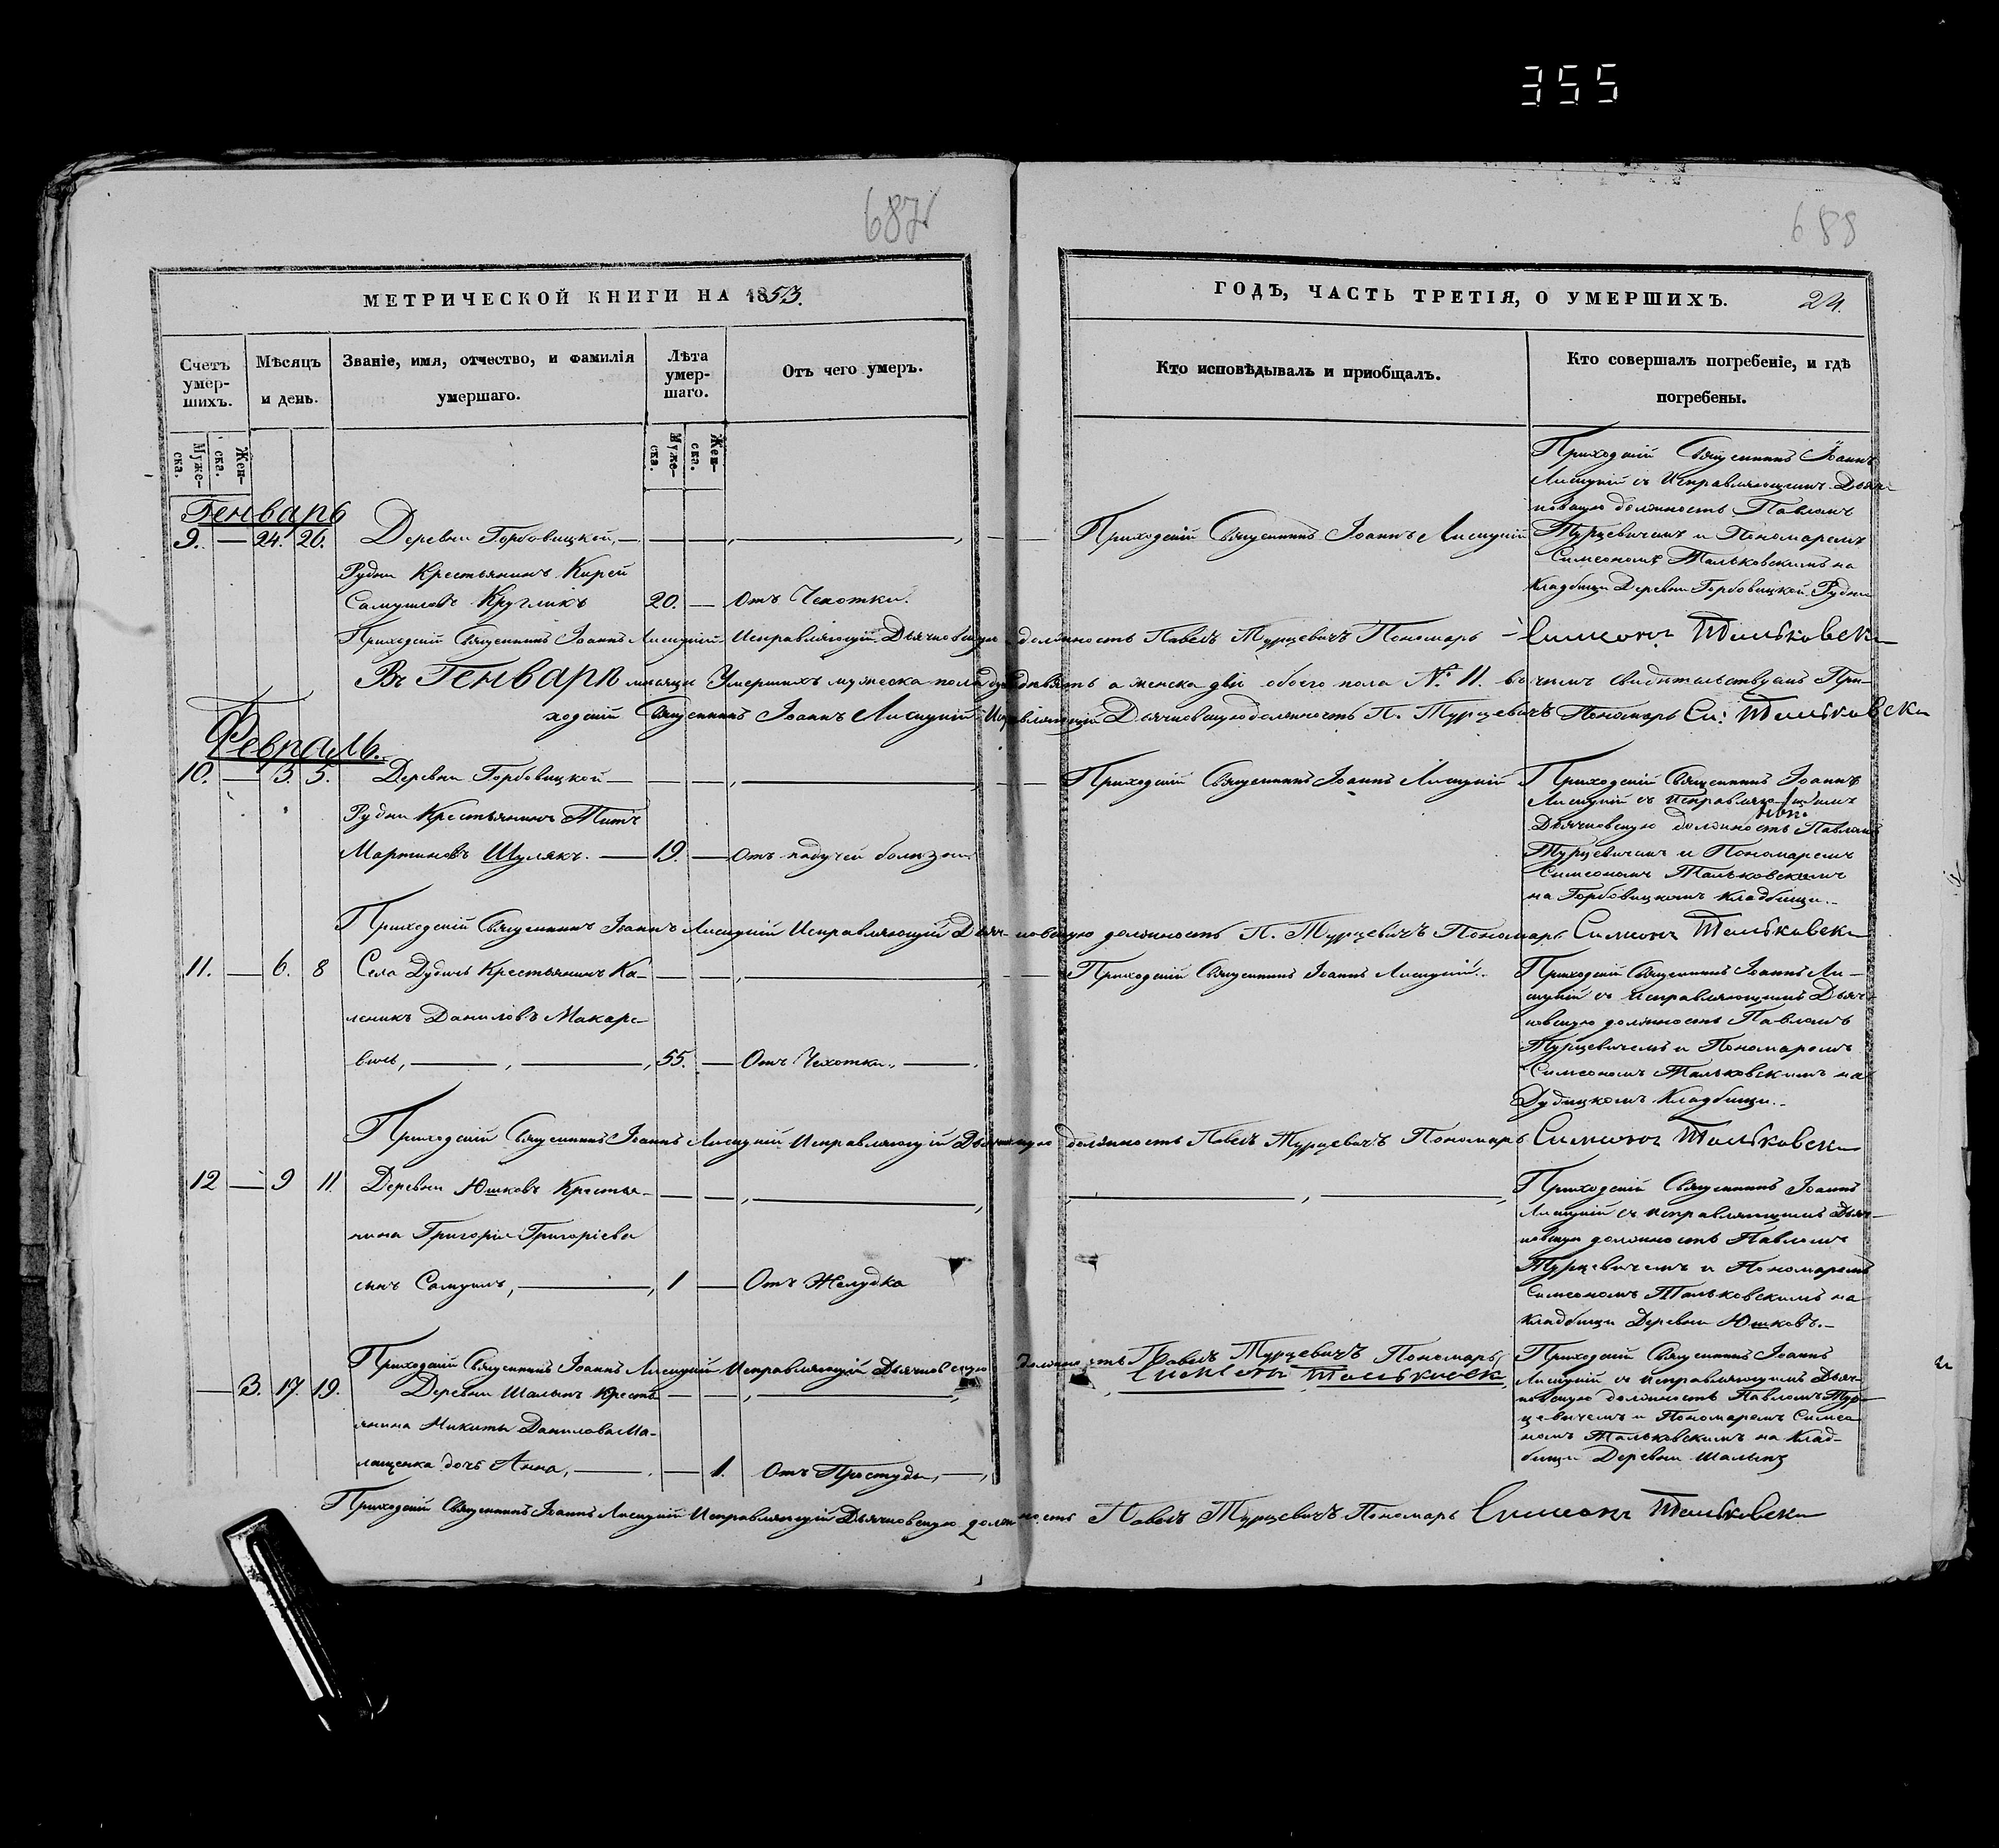 355
687
688
МЕТРИЧЕСКОЙ КНИГИ НА 1853.
ГОДЪ, ЧАСТЬ ТРЕТІЯ, О УМЕРШИХЪ. 24.
Счетъ умер-шихъ.
Мѣсяцъ и день.
Званіе, имя, отчество, и фамилія умершаго.
Лѣта умер-шаго.
Отъ чего умеръ.
Кто исповѣдывалъ и приобщалъ.
Кто совершалъ погребеніе, и гдѣ погребены.
Муже-ска.
Жен-ска.
Муже-ска.
Жен-ска.
Генварь
9. — 24. 26. Деревни Горбовицкой
Рудни Крестьянинъ Кирей
Самуиловъ Кругликъ 20. — Отъ Чехотки.
Приходскій Священникъ Іоаннъ Лисицкій
Приходскій Священникъ Іоаннъ
Лисицкій съ Исправляющимъ Дьяч-
ковскую должность Павломъ
Турцевичемъ и Пономаремъ
Симеономъ Тальковскимъ на
Кладбищи Деревни Горбовицкой Рудни
Приходскій Священникъ Іоаннъ Лисицкій Исправляющій Дьячковскую должность Павелъ Турцевичъ Пономарь Симеонъ Тальковски
Въ Генварѣ мѣсяцѣ Умершихъ мужеска пола девять а женска двѣ обоего пола № 11. въ чемъ свидѣтельствуемъ При-
ходскій Священникъ Іоаннъ Лисицкій Исправляющій Дьячковскую должность П. Турцевичъ Пономарь Си: Тальковски
Февраль.
10. — 3. 5. Деревни Горбовицкой
Рудни Крестьянинъ Титъ
Мартиновъ Шулякъ. — 19. — Отъ падучей болезни
Приходскій Священникъ Іоаннъ Лисицкій
Приходскій Священникъ Іоаннъ
Лисицкій съ Исправляющимъ
Дьячковскую должность Павломъ
Турцевичемъ и Пономаремъ
Симеономъ Тальковскимъ
на Горбовицкомъ Кладбищи.
Приходскій Священникъ Іоаннъ Лисицкій Исправляющій Дьячковскую должность П. Турцевичъ Пономарь Симеонъ Тальковски
11. — 6. 8 Села Дудичъ Крестьянинъ Ка-
леникъ Даниловъ Макаре-
вичъ, 55. — Отъ Чехотки.
Приходскій Священникъ Іоаннъ Лисицкій.
Приходскій Священникъ Іоаннъ Ли-
сицкій съ исправляющимъ Дьяч-
ковскую должность Павломъ
Турцевичемъ и Пономаремъ
Симеономъ Тальковскимъ на
Дудицкомъ Кладбищи.
Приходскій Священникъ Іоаннъ Лисицкій Исправляющій Дьячковскую должность Павелъ Турцевичъ Пономарь Симеонъ Тальковски
12 — 9 11. Деревни Юшковъ Крестья-
нина Григорія Григоріева
сынъ Самуилъ, 1 — Отъ Желудка
Приходскій Священникъ Іоаннъ
Лисицкій съ исправляющимъ Дьяч-
ковскую должность Павломъ
Турцевичемъ и Пономаремъ
Симеономъ Тальковскимъ на
Кладбищи Деревни Юшковъ.
Приходскій Священникъ Іоаннъ Лисицкій Исправляющій Дьячковскую должность Павелъ Турцевичъ Пономарь
Симеонъ Тальковски
— 3. 17. 19. Деревни Шалынъ Кресть-
янина Никиты Данилова Ма-
лащенка дочь Анна, — 1. Отъ Простуды,
Приходскій Священникъ Іоаннъ
Лисицкій съ исправляющимъ Дьяч-
ковскую должность Павломъ Тур-
цевичемъ и Пономаремъ Симео-
номъ Тальковскимъ на Клад-
бищи Деревни Шалынъ
Приходскій Священникъ Іоаннъ Лисицкій Исправляющій Дьячковскую должность Павелъ Турцевичъ Пономарь Симеонъ Тальковски